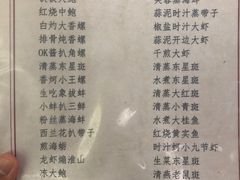 红烧中鲍
蒜泥时汁蒸带子
白灼大香螺
椒盐时汁大虾
排骨炖香螺
蒜泥开边大虾
OK酱扒角螺
千煎大虾
清蒸东星斑
水煮东星斑
香焗小王螺
清蒸大红斑
生吃象拔蚌
清蒸小青斑
小蚌扒三鲜
水煮大桂鱼
粉丝蒸海蚌
红烧黄实鱼
西兰花扒带子
时汁焗小九节虾
煎海蛎
生菜东星斑
龙虾煸淮山
清蒸老鼠斑
冻大鲍